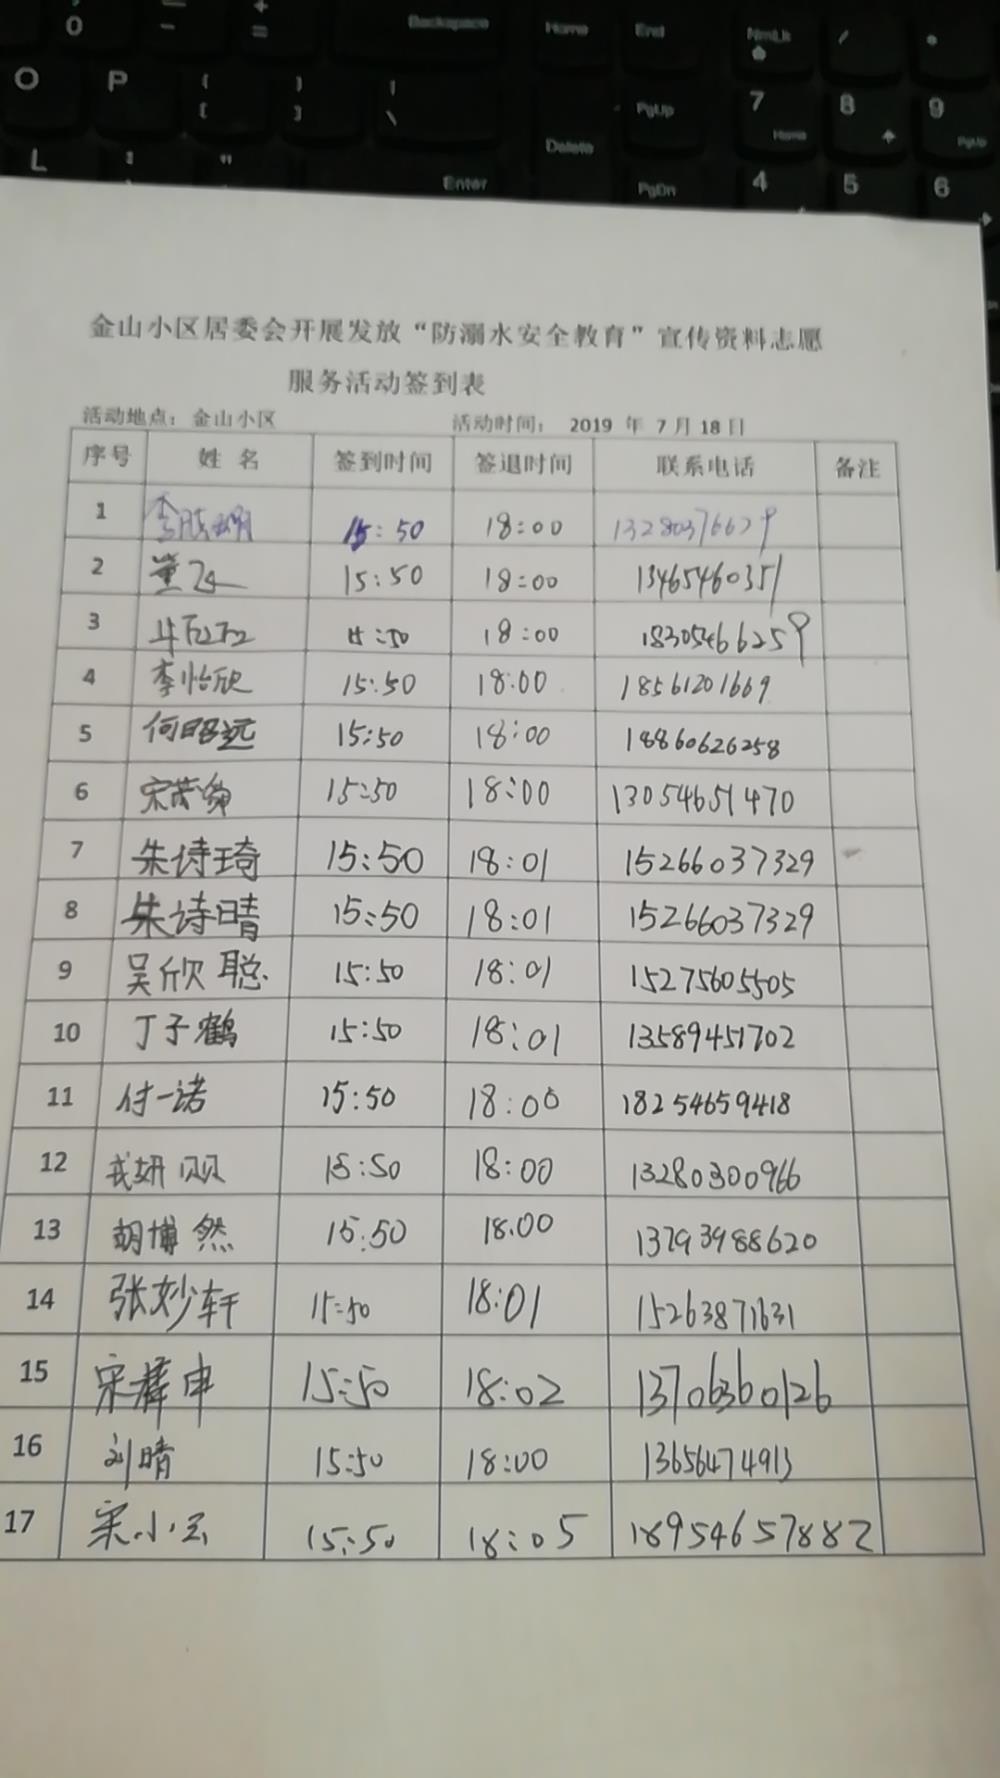 0 - + =
Backspace Home End NmLk / *
O P { [ } ] | \ PgUp 7 Home 8 9 PgUp
L : " Enter Delete PgDn 4 5 6
金山小区居委会开展发放“防溺水安全教育”宣传资料志愿
服务活动签到表
活动地点：金山小区 活动时间： 2019 年 7 月 18 日
序号 姓 名 签到时间 签退时间 联系电话 备注
1 15:50 18:00 13280376629
2 董飞 15:50 18:00 13465460351
3 15:50 18:00 18305466259
4 李怡欣 15:50 18:00 18561201669
5 何昭远 15:50 18:00 18860626258
6 15:50 18:00 13054651470
7 朱诗琦 15:50 18:01 15266037329
8 朱诗晴 15:50 18:01 15266037329
9 吴欣聪 15:50 18:01 15275605505
10 丁子鹤 15:50 18:01 13589451702
11 付一诺 15:50 18:00 18254659418
12 15:50 18:00 13280300966
13 胡博然 15:50 18:00 13793988620
14 张妙轩 15:50 18:01 15263871631
15 15:50 18:02 13706360126
16 刘晴 15:50 18:00 13656474913
17 宋小云 15:50 18:05 18954657882